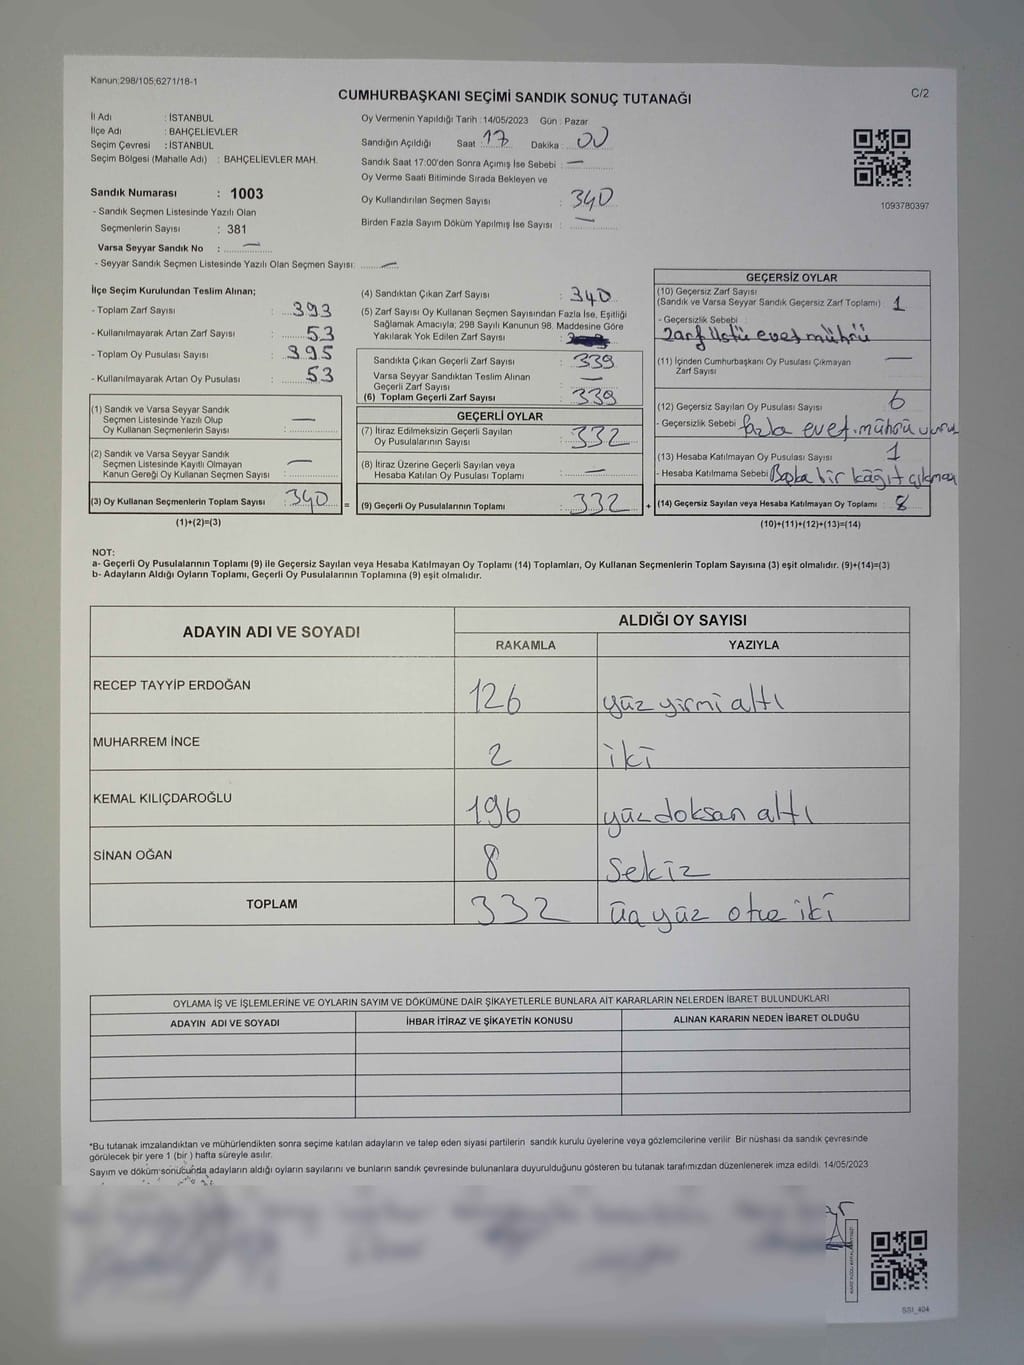 Kanun;298/105;6271/18-1
C/2
CUMHURBAŞKANI SEÇİMİ SANDIK SONUÇ TUTANAĞI
İl Adı : İSTANBUL
İlçe Adı : BAHÇELİEVLER
Seçim Çevresi : İSTANBUL
Seçim Bölgesi (Mahalle Adı) : BAHÇELİEVLER MAH.
Sandık Numarası : 1003
- Sandık Seçmen Listesinde Yazılı Olan
Seçmenlerin Sayısı : 381
Varsa Seyyar Sandık No : —
- Seyyar Sandık Seçmen Listesinde Yazılı Olan Seçmen Sayısı: —
Oy Vermenin Yapıldığı Tarih : 14/05/2023 Gün : Pazar
Sandığın Açıldığı Saat : 17 Dakika : 00
Sandık Saat 17:00'den Sonra Açımış İse Sebebi : —
Oy Verme Saati Bitiminde Sırada Bekleyen ve
Oy Kullandırılan Seçmen Sayısı : 340
Birden Fazla Sayım Döküm Yapılmış İse Sayısı : —
1093780397
İlçe Seçim Kurulundan Teslim Alınan;
- Toplam Zarf Sayısı : 393
- Kullanılmayarak Artan Zarf Sayısı : 53
- Toplam Oy Pusulası Sayısı : 395
- Kullanılmayarak Artan Oy Pusulası : 53
(1) Sandık ve Varsa Seyyar Sandık
Seçmen Listesinde Yazılı Olup
Oy Kullanan Seçmenlerin Sayısı : —
(2) Sandık ve Varsa Seyyar Sandık
Seçmen Listesinde Kayıtlı Olmayan
Kanun Gereği Oy Kullanan Seçmen Sayısı : —
(3) Oy Kullanan Seçmenlerin Toplam Sayısı : 340 =
(1)+(2)=(3)
(4) Sandıktan Çıkan Zarf Sayısı : 340
(5) Zarf Sayısı Oy Kullanan Seçmen Sayısından Fazla İse, Eşitliği
Sağlamak Amacıyla; 298 Sayılı Kanunun 98. Maddesine Göre
Yakılarak Yok Edilen Zarf Sayısı :
Sandıkta Çıkan Geçerli Zarf Sayısı : 339
Varsa Seyyar Sandıktan Teslim Alınan
Geçerli Zarf Sayısı : —
(6) Toplam Geçerli Zarf Sayısı : 339
GEÇERLİ OYLAR
(7) İtiraz Edilmeksizin Geçerli Sayılan
Oy Pusulalarının Sayısı : 332
(8) İtiraz Üzerine Geçerli Sayılan veya
Hesaba Katılan Oy Pusulaları Toplamı : —
(9) Geçerli Oy Pusulalarının Toplamı : 332 +
GEÇERSİZ OYLAR
(10) Geçersiz Zarf Sayısı
(Sandık ve Varsa Seyyar Sandık Geçersiz Zarf Toplamı) : 1
- Geçersizlik Sebebi :
zarf üstü evet mührü
(11) İçinden Cumhurbaşkanı Oy Pusulası Çıkmayan
Zarf Sayısı : —
(12) Geçersiz Sayılan Oy Pusulası Sayısı : 6
- Geçersizlik Sebebi : fazla evet mührü
(13) Hesaba Katılmayan Oy Pusulası Sayısı : 1
- Hesaba Katılmama Sebebi : Başka bir kağıt
(14) Geçersiz Sayılan veya Hesaba Katılmayan Oy Toplamı : 8
(10)+(11)+(12)+(13)=(14)
NOT:
a- Geçerli Oy Pusulalarının Toplamı (9) ile Geçersiz Sayılan veya Hesaba Katılmayan Oy Toplamı (14) Toplamları, Oy Kullanan Seçmenlerin Toplam Sayısına (3) eşit olmalıdır. (9)+(14)=(3)
b- Adayların Aldığı Oyların Toplamı, Geçerli Oy Pusulalarının Toplamına (9) eşit olmalıdır.
ADAYIN ADI VE SOYADI
ALDIĞI OY SAYISI
RAKAMLA YAZIYLA
RECEP TAYYİP ERDOĞAN 126 yüz yirmi altı
MUHARREM İNCE 2 iki
KEMAL KILIÇDAROĞLU 196 yüzdoksan altı
SİNAN OĞAN 8 Sekiz
TOPLAM 332 üç yüz otuz iki
OYLAMA İŞ VE İŞLEMLERİNE VE OYLARIN SAYIM VE DÖKÜMÜNE DAİR ŞİKAYETLERLE BUNLARA AİT KARARLARIN NELERDEN İBARET BULUNDUKLARI
ADAYIN ADI VE SOYADI İHBAR İTİRAZ VE ŞİKAYETİN KONUSU ALINAN KARARIN NEDEN İBARET OLDUĞU
*Bu tutanak imzalandıktan ve mühürlendikten sonra seçime katılan adayların ve talep eden siyasi partilerin sandık kurulu üyelerine veya gözlemcilerine verilir Bir nüshası da sandık çevresinde
görülecek bir yere 1 (bir ) hafta süreyle asılır.
Sayım ve döküm sonucunda adayların aldığı oyların sayılarını ve bunların sandık çevresinde bulunanlara duyurulduğunu gösteren bu tutanak tarafımızdan düzenlenerek imza edildi. 14/05/2023
SSI_404